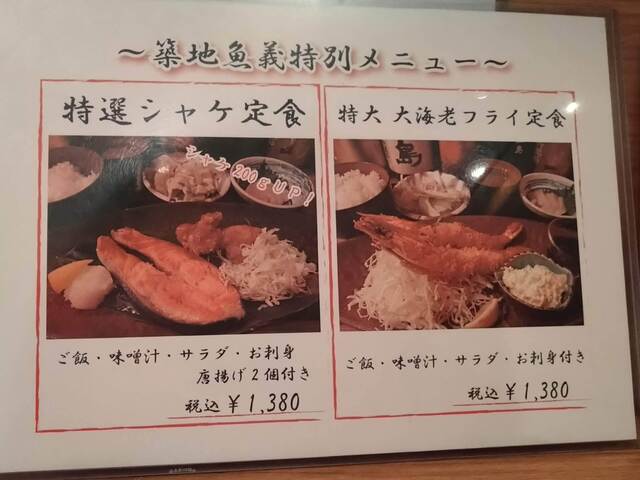 ～築地魚義特別メニュー～
特選シャケ定食
シャケ200gUP！
ご飯・味噌汁・サラダ・お刺身
唐揚げ2個付き
税込￥1,380
特大 大海老フライ定食
島
ご飯・味噌汁・サラダ・お刺身付き
税込￥1,380